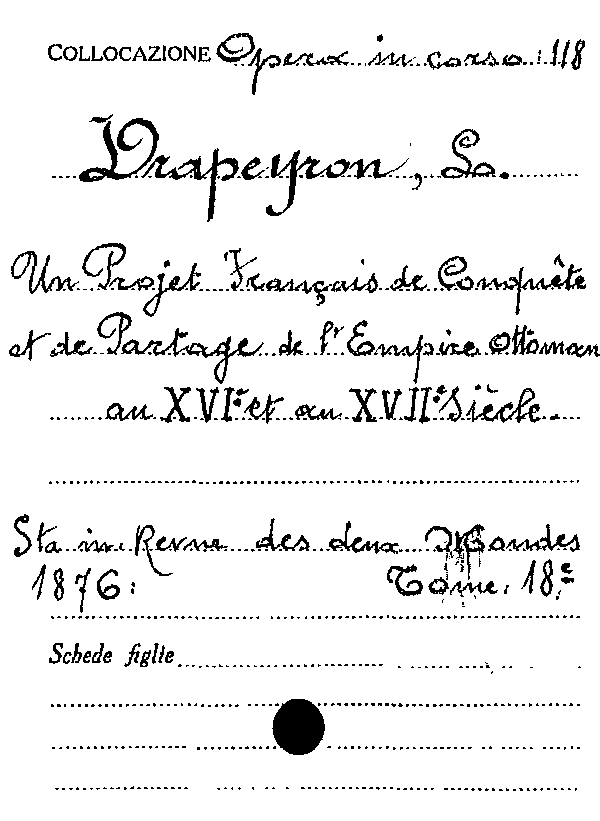 COLLOCAZIONE Opera in corso 118
Drapeyron, L.
Un Projet Français de Conquête
et de Partage de l'Empire Ottoman
au XVIe et au XVIIe Siècle.
Sta in Revue des deux Mondes
1876: Tome 18e
Schede figlie